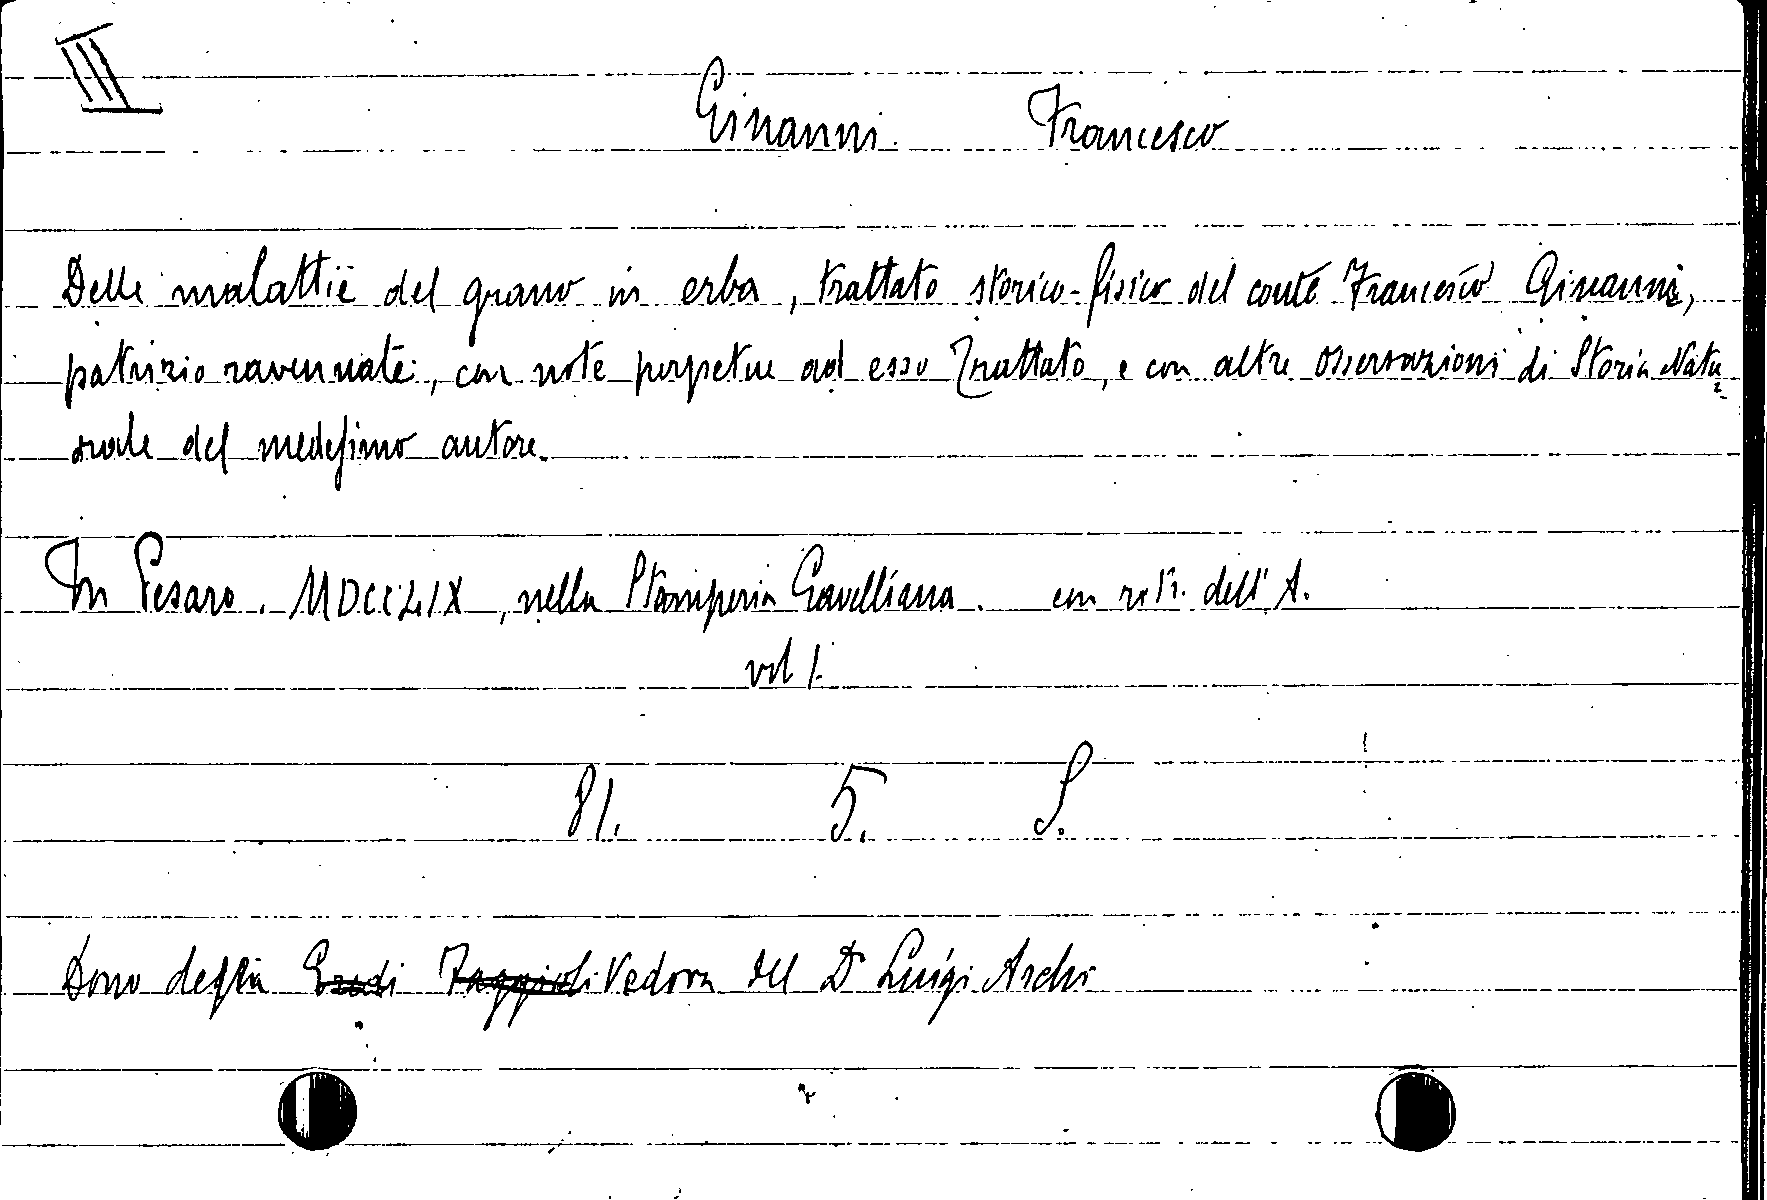 III
Ginanni Francesco
Delle malattie del grano in erba, trattato storico-fisico del conte Francesco Ginanni,
patrizio ravennate, con note perpetue ad esso Trattato, e con altre osservazioni di Storia Natu=
rale del medesimo autore.
In Pesaro. MDCCLIX, nella Stamperia Gavelliana. con ritr. dell'A.
vol 1.
81. 5. S.
Dono della Eredi Faggioli Vedova del Dr Luigi Archi